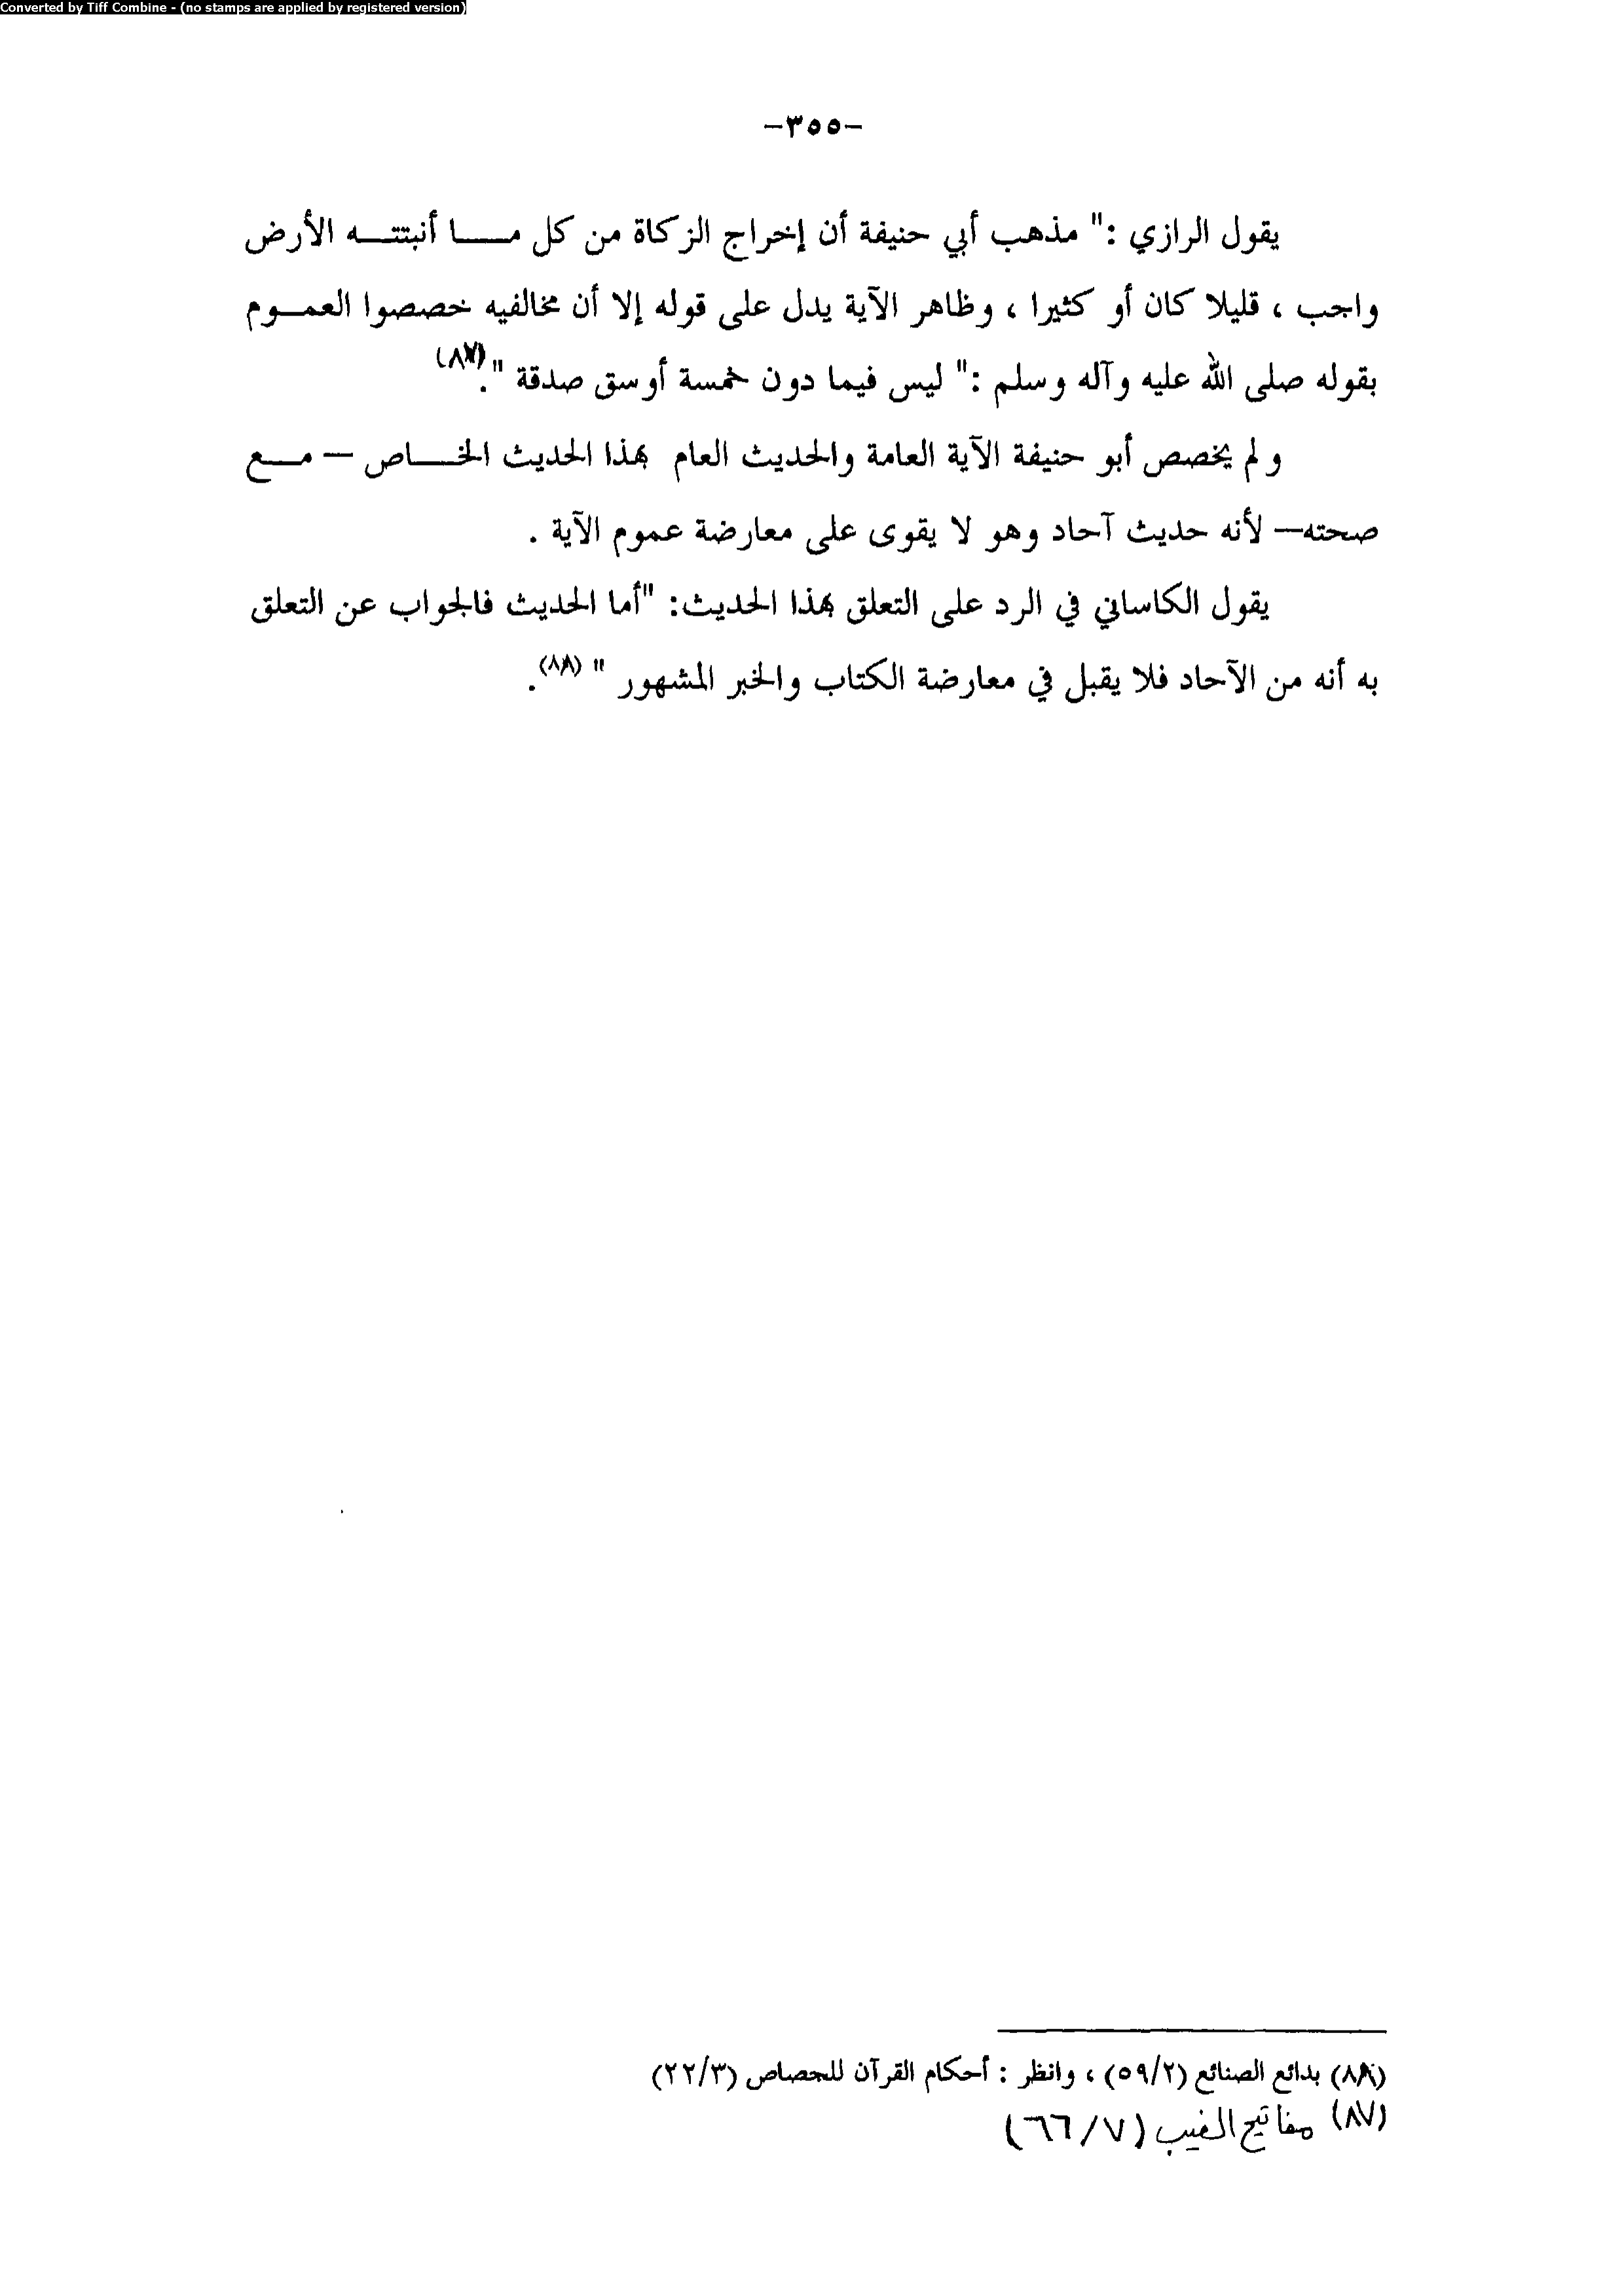 Converted by Tiff Combine - (no stamps are applied by registered version)
-٣٥٥-
يقول الرازي :" مذهب أبي حنيفة أن إخراج الزكاة من كل مــــا أنبتتــه الأرض
واجب ، قليلا كان أو كثيرا ، وظاهر الآية يدل على قوله إلا أن مخالفيه خصصوا العمــوم
بقوله صلى الله عليه وآله وسلم :" ليس فيما دون خمسة أوسق صدقة ".(٨٧)
و لم يخصص أبو حنيفة الآية العامة والحديث العام بهذا الحديث الخــــاص – مـــع
صحته– لأنه حديث آحاد وهو لا يقوى على معارضة عموم الآية .
يقول الكاساني في الرد على التعلق بهذا الحديث: "أما الحديث فالجواب عن التعلق
به أنه من الآحاد فلا يقبل في معارضة الكتاب والخبر المشهور " (٨٨).
(٨٨) بدائع الصنائع (٥٩/٢) ، وانظر : أحكام القرآن للجصاص (٢٢/٣)
(٨٧) مفاتيح الغيب (٦٦/٧)